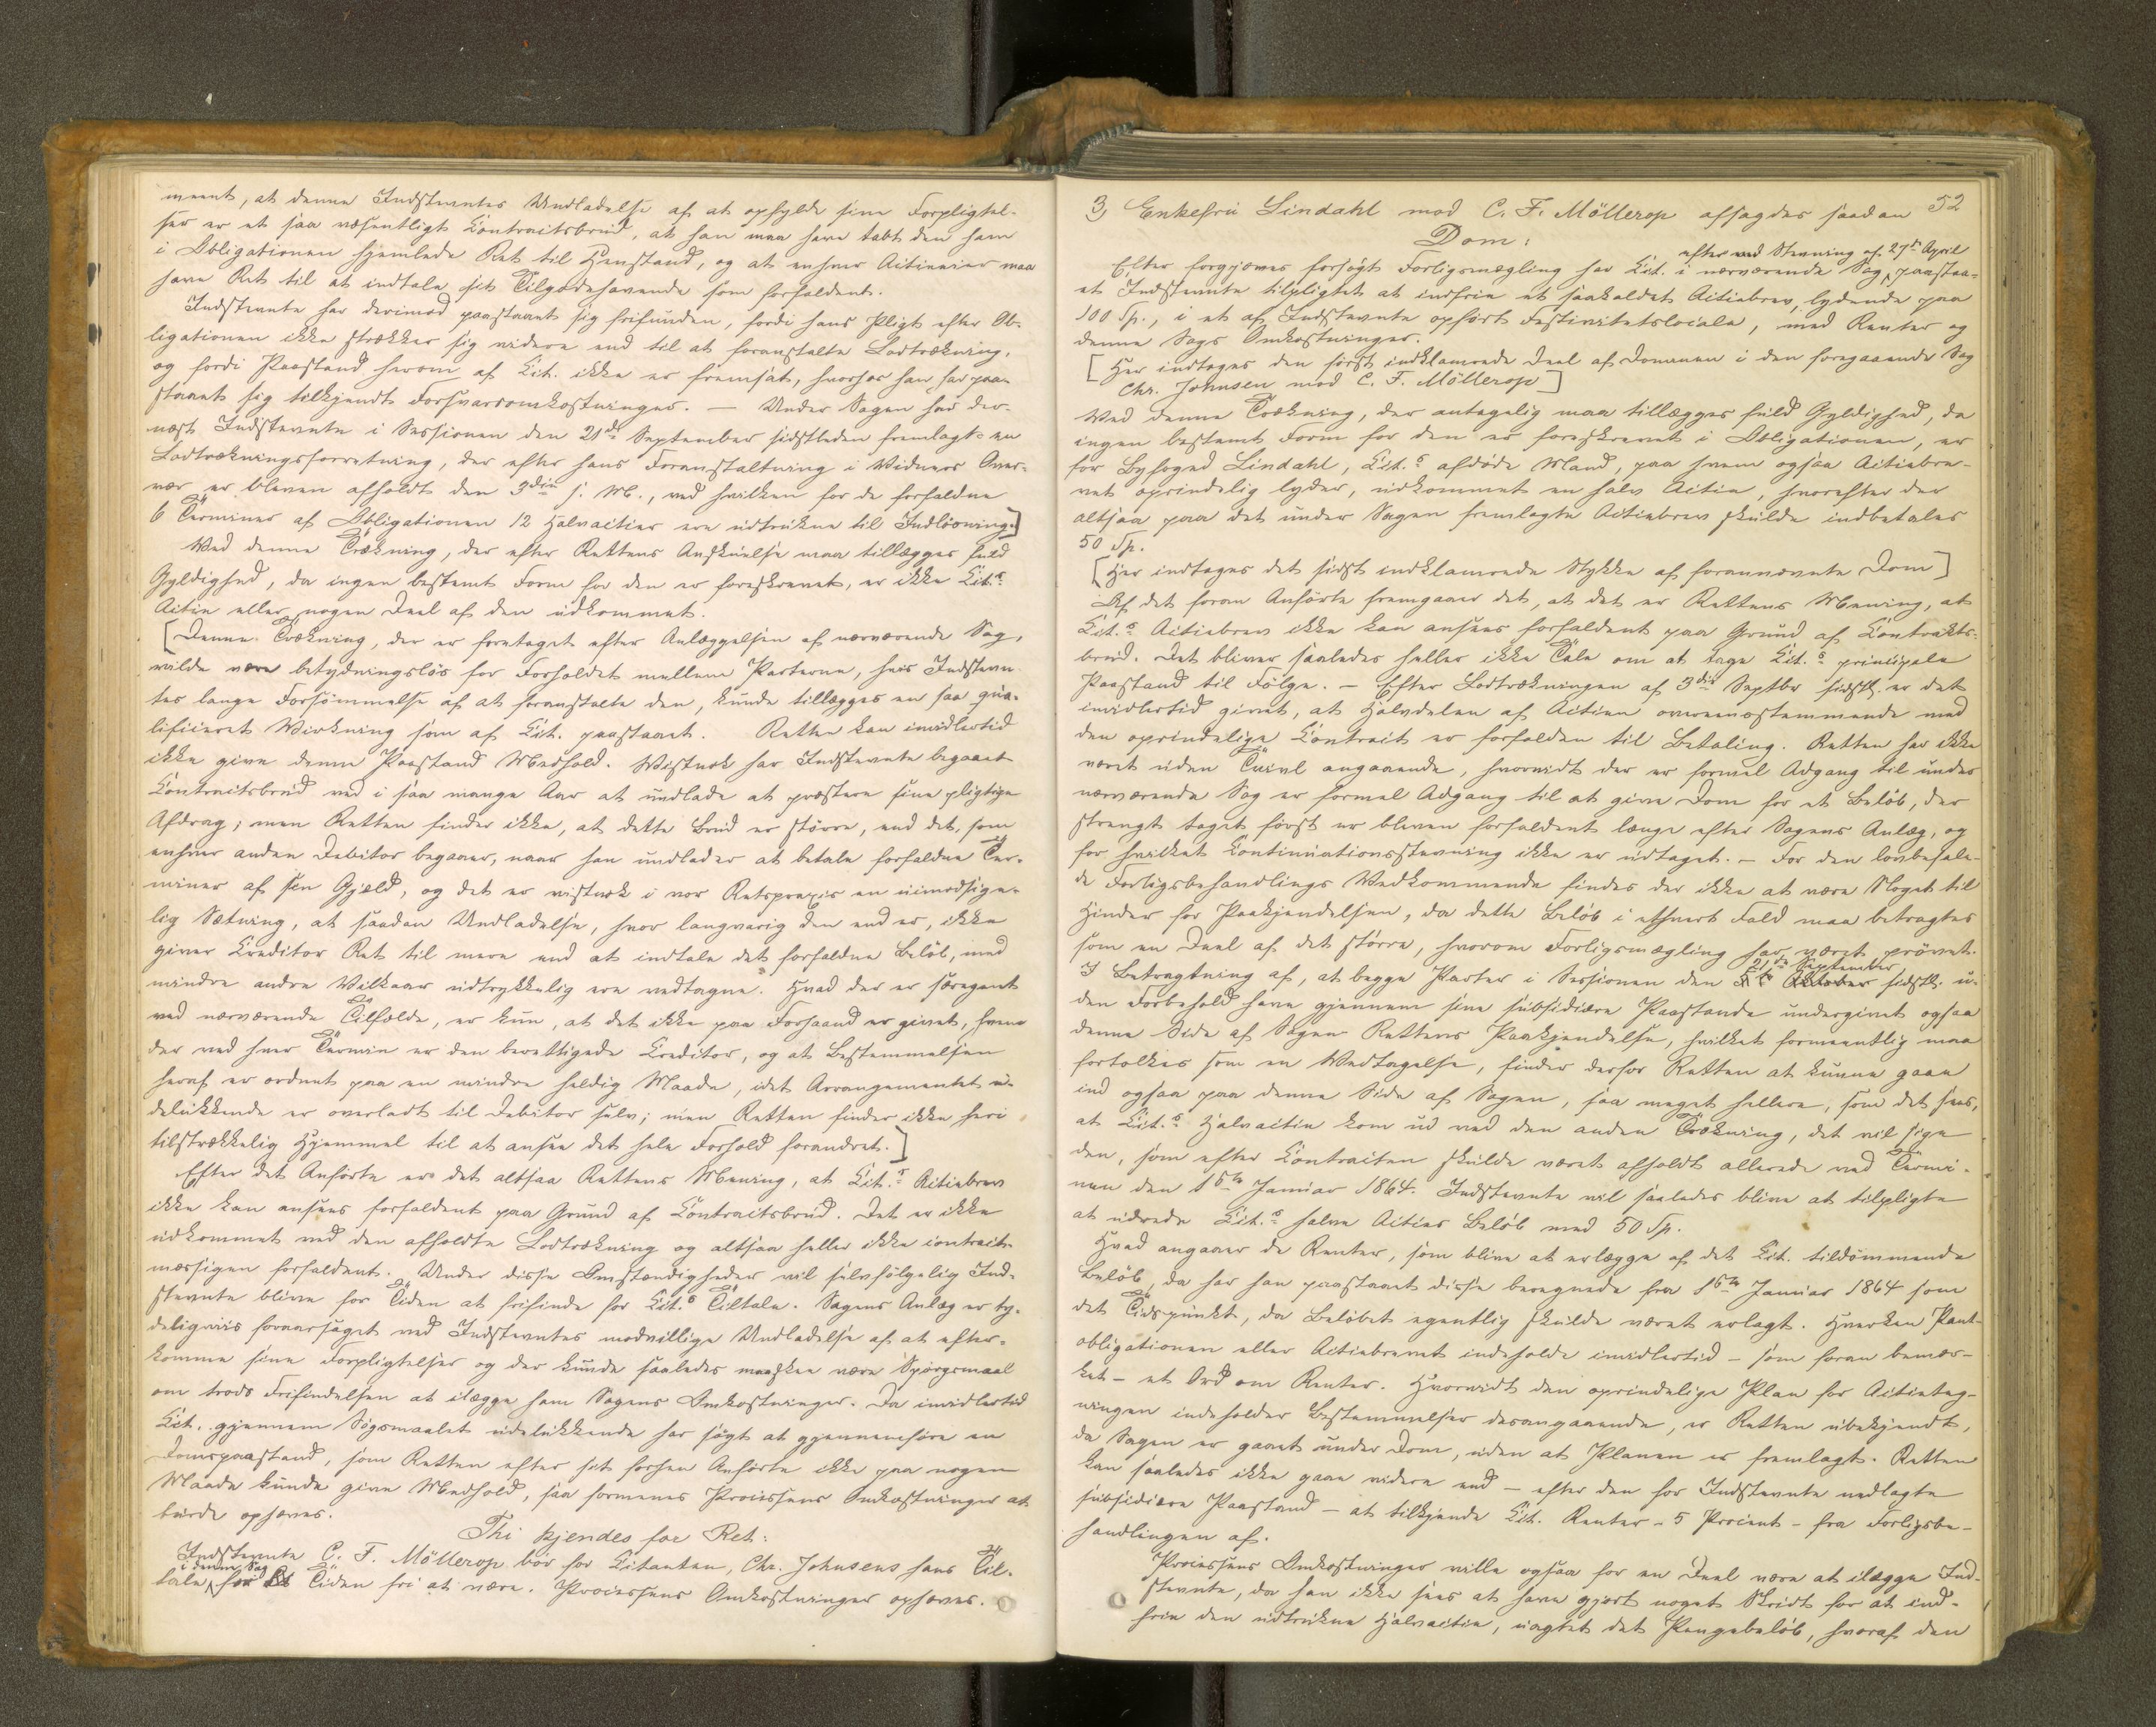 meent, at denne Indstevntes Undladelse af at opfylde sine Forpligtel-
ser er et saa væsentligt Contractsbrud, at han maa have tabt den ham
i Obligationen hjemlede Ret til Henstand, og at enhver Actionier maa
have Ret til at indtale sit Tilgodehavende som forfaldent.
Indstevnte har derimod paastaaet sig frifunden, fordi hans Pligt efter Ob-
ligationen ikke strækker sig videre end til at foranstalte Lodtrækning,
og fordi Paastand herom af Cit. ikke er fremsat, hvorhos han har paa-
staaet sig tilkjendt Forsvarsomkostninger. — Under Sagen har der-
næst Indstevnte i Sessionen den 21de September sidstleden fremlagt en
Lodtrækningsforretning, der efter hans Foranstaltning i Vidners Over-
vær er bleven afholdt den 3die s. M., ved hvilken for de forfaldne
6 Terminer af Obligationen 12 Halvactier ere udtrukne til Indløsning.]
Ved denne Trækning, der efter Rettens Anskuelse maa tillægges fuld
Gyldighed, da ingen bestemt Form for den er foreskrevet, er ikke Cit.s
Actie eller nogen Deel af den udkommet.
[Denne Trækning, der er foretaget efter Anlæggelsen af nærværende Sag,
vilde være betydningsløs for Forholdet mellem Parterne, hvis Indstevn-
tes lange Forsømmelse af at foranstalte den, kunde tillægges en saa qva-
lificeret Virkning som af Cit. paastaaet. Retten kan imidlertid
ikke give denne Paastand Medhold. Vistnok har Indstevnte begaaet
Contractsbrud ved i saa mange Aar at undlade at præstere sine pligtige
Afdrag; men Retten finder ikke, at dette Brud er større, end det, som
enhver anden Debitor begaaer, naar han undlader at betale forfaldne Ter-
miner af sin Gjæld, og det er vistnok i vor Retspraxis en uimodsige-
lig Sætning, at saadan Undladelse, hvor langvarig den end er, ikke
giver Creditor Ret til mere end at indtale det forfaldne Beløb, med
mindre andre Vilkaar udtrykkelig ere vedtagne. Hvad der er særegent
ved nærværende Tilfælde, er kun, at det ikke paa Forhaand er givet, hvem
der ved hver Termin er den berettigede Creditor, og at Bestemmelsen
heraf er ordnet paa en mindre heldig Maade, idet Arrangementet u-
delukkende er overladt til Debitor selv; men Retten finder ikke heri
tilstrækkelig Hjemmel til at ansee det hele Forhold forandret.]
Efter det Anførte er det altsaa Rettens Mening, at Cit.s Actiebrev
ikke kan ansees forfaldent paa Grund af Contractsbrud. Det er ikke
udkommet ved den afholdte Lodtrækning og altsaa heller ikke contracts-
mæssigen forfaldent. Under disse Omstændigheder vil selvfølgelig Ind-
stevnte blive for Tiden at frifinde for Cit.s Tiltale. Sagens Anlæg er ty-
deligviis foraarsaget ved Indstevntes modvillige Undladelse af at efter-
komme sine Forpligtelser og der kunde saaledes maaskee være Spørgsmaal
om trods Frifindelsen at ilægge ham Sagens Omkostninger. Da imidlertid
Cit. gjennem Søgsmaalet udelukkende har søgt at gjennemføre en
Domspaastand, som Retten efter sit forhen Anførte ikke paa nogen
Maade kunde give Medhold, saa formenes Processens Omkostninger at
burde ophæves.
Thi kjendes for Ret:
Indstevnte C. F. Möllerop bør for Citanten, Chr. Johnsens hans Til-
i denne Sag
tale for Tiden fri at være. Processens Omkostninger ophæves.
52
3, Enkefru Lindahl mod C. F. Möllerop afsagdes saadan
Dom:
efter ved Stevning af 27de April
Efter forgjæves forsøgt Forligsmægling har Cit. i nærværende Sag, paastaa-
et Indstevnte tilpligtet at indfrie et saakaldet Actiebrev, lydende paa
100 Sp., i et af Indstevnte opført Festivitetslocale, med Renter og
denne Sags Omkostninger.
[Her indtages den først indklamrede Deel af Dommen i den foregaaende Sag
Chr. Johnsen mod C. F. Möllerop]
Ved denne Trækning, der antagelig maa tillægges fuld Gyldighed, da
ingen bestemt Form for den er foreskrevet i Obligationen, er
for Byfoged Lindahl, Cit.s afdøde Mand, paa hvem ogsaa Actiebre-
vet oprindelig lyder, udkommet en halv Actie, hvorefter der
altsaa paa det under Sagen fremlagte Actiebrev skulde indbetales
50 Sp.
[Her indtages det sidst indklamrede Stykke af forannævnte Dom]
Af det foran Anførte fremgaaer det, at det er Rettens Mening, at
Cit.s Actiebrev ikke kan ansees forfaldent paa Grund af Contrakts-
brud. Det bliver saaledes heller ikke Tale om at tage Cit.s principale
Paastand til Følge. — Efter Lodtrækningen af 3die Septbr sidstl. er det
imidlertid givet, at Halvdelen af Actien overeensstemmende med
den oprindelige Contract er forfalden til Betaling. Retten har ikke
været uden Tvivl angaaende, hvorvidt der er formel Adgang til under
nærværende Sag er formel Adgang til at give Dom for et Beløb, der
strengt taget først er bleven forfaldent længe efter Sagens Anlæg, og
for hvilket Continuationsstevning ikke er udtaget. — For den lovbefale-
de Forligsbehandlings Vedkommende findes der ikke at være Noget til
Hinder for Paakjendelsen, da dette Beløb i ethvert Fald maa betragtes
som en Deel af det større, hvorom Forligsmægling har været prøvet.
21de September
I Betragtning af, at begge Parter i Sessionen den October sidstl. u-
den Forbehold have gjennem sine subsidiære Paastande undergivet ogsaa
denne Side af Sagen Rettens Paakjendelse, hvilket formeentlig maa
fortolkes som en Vedtagelse, finder derfor Retten at kunne gaae
ind ogsaa paa denne Side af Sagen, saa meget hellere, som det sees,
at Cit.s Halvactie kom ud ved den anden Trækning, det vil sige
den, som efter Contracten skulde været afholdt allerede ved Termi-
nen den 15de Januar 1864. Indstevnte vil saaledes blive at tilpligte
at udrede Cit.s halve Acties Beløb med 50 Sp.
Hvad angaaer de Renter, som blive at erlægge af det Cit. tildømmende
Beløb, da har han paastaaet disse beregnede fra 15de Januar 1864 som
det Tidspunkt, da Beløbet egentlig skulde været erlagt. Hverken Pant-
obligationen eller Actiebrevet indeholde imidlertid – som foran bemær-
ket – et Ord om Renter. Hvorvidt den oprindelige Plan for Actieteg-
ningen indeholder Bestemmelser desangaaende, er Retten ubekjendt,
da Sagen er gaaet under Dom, uden at Planen er fremlagt. Retten
kan saaledes ikke gaae videre end – efter den for Indstevnte nedlagte
subsidiære Paastand – at tilkjende Cit. Renter – 5 Procent – fra Forligsbe-
handlingen af.
Processens Omkostninger ville ogsaa for en Deel være at ilægge Ind-
stevnte, da han ikke sees at have gjort noget Skridt for at ind-
frie den udtrukne Halvactie, uagtet det Pengebeløb, hvoraf den